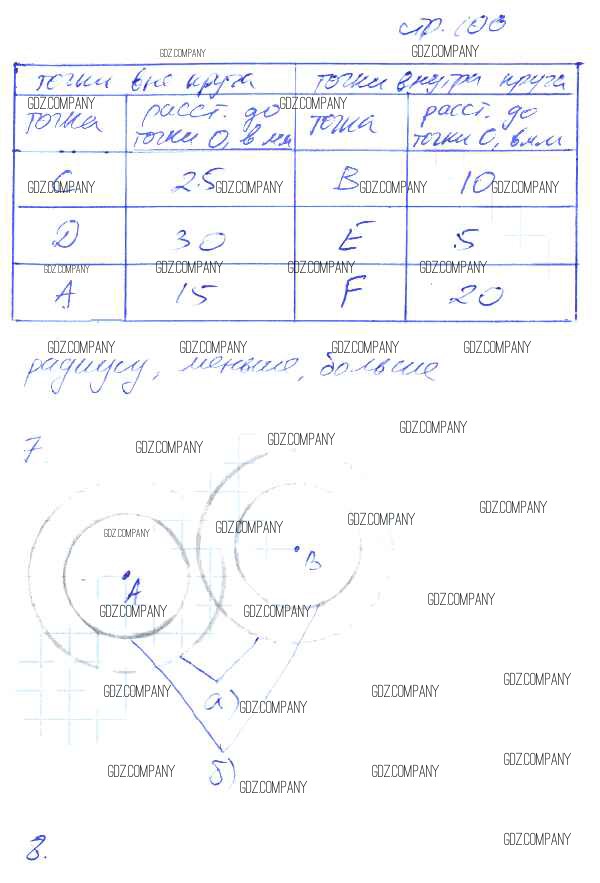 стр. 100
GDZ.COMPANY GDZ.COMPANY
точки вне круга точки внутри круга
GDZ.COMPANY GDZ.COMPANY
точка расст. до точки О, в мм точка расст. до точки О, в мм
C 25 B 10
GDZ.COMPANY GDZ.COMPANY GDZ.COMPANY GDZ.COMPANY
D 30 E 5
GDZ.COMPANY GDZ.COMPANY GDZ.COMPANY GDZ.COMPANY
A 15 F 20
GDZ.COMPANY GDZ.COMPANY GDZ.COMPANY GDZ.COMPANY
радиусу, меньше, больше
GDZ.COMPANY
GDZ.COMPANY
7. GDZ.COMPANY
GDZ.COMPANY
GDZ.COMPANY
GDZ.COMPANY GDZ.COMPANY
B
A
GDZ.COMPANY
GDZ.COMPANY GDZ.COMPANY
GDZ.COMPANY
GDZ.COMPANY GDZ.COMPANY
а) GDZ.COMPANY
GDZ.COMPANY
б) GDZ.COMPANY GDZ.COMPANY
GDZ.COMPANY
GDZ.COMPANY
8.